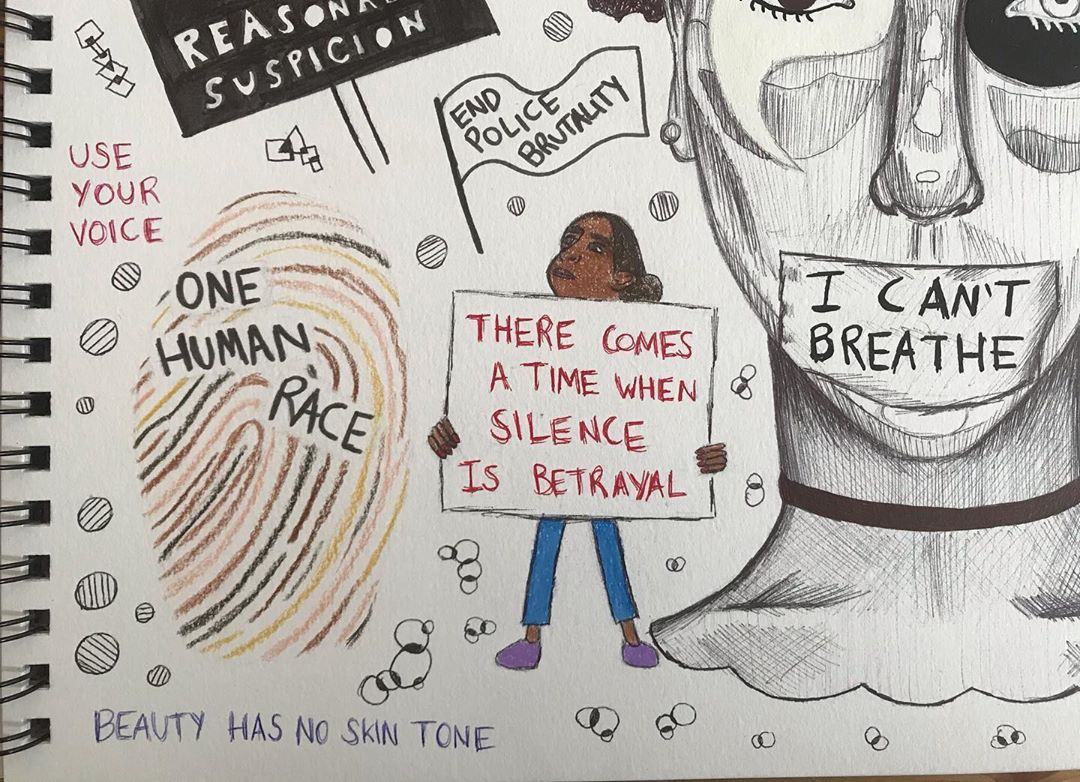 REASONA
SUSPICION
END
POLICE
BRUTALITY
USE
YOUR
VOICE
ONE
HUMAN
RACE
THERE COMES
A TIME WHEN
SILENCE
IS BETRAYAL
I CAN'T
BREATHE
BEAUTY HAS NO SKIN TONE